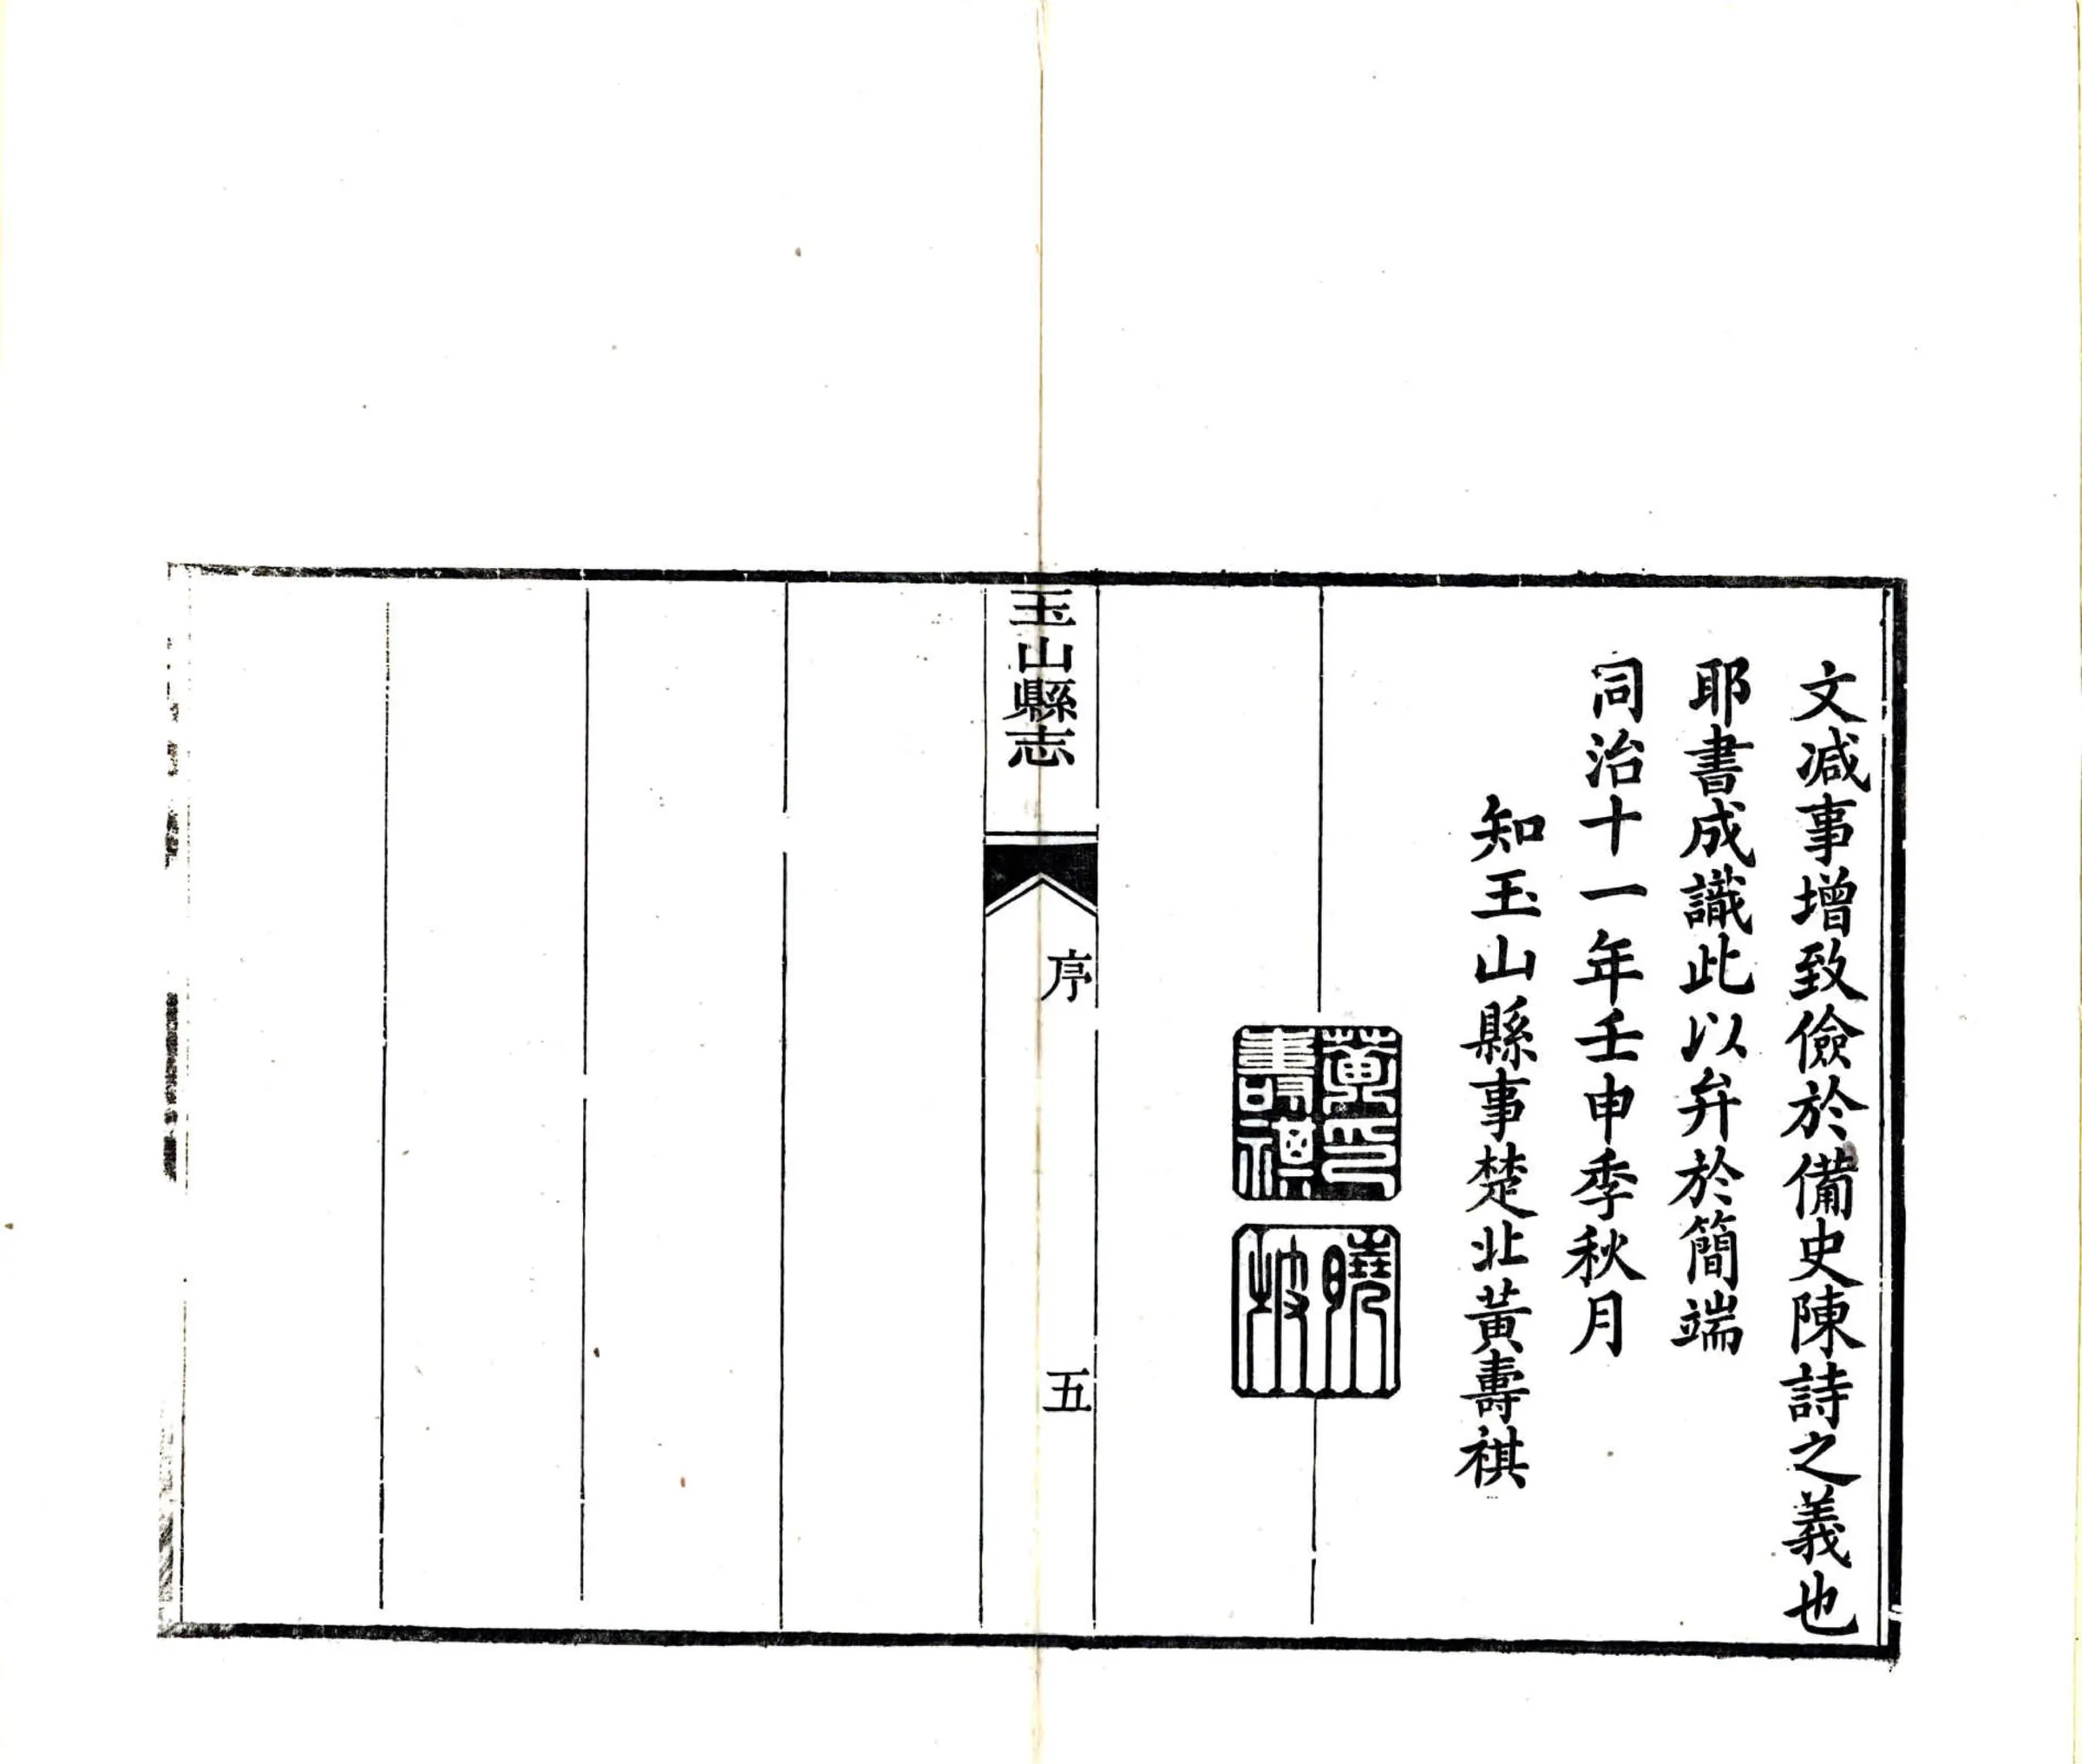 文减事增致儉於備史陳詩之義也
耶書成識此以弁於簡端
同治十一年壬申季秋月
知玉山縣事楚北黃壽祺
黃印
壽祺
曉
坡
玉山縣志
序
五